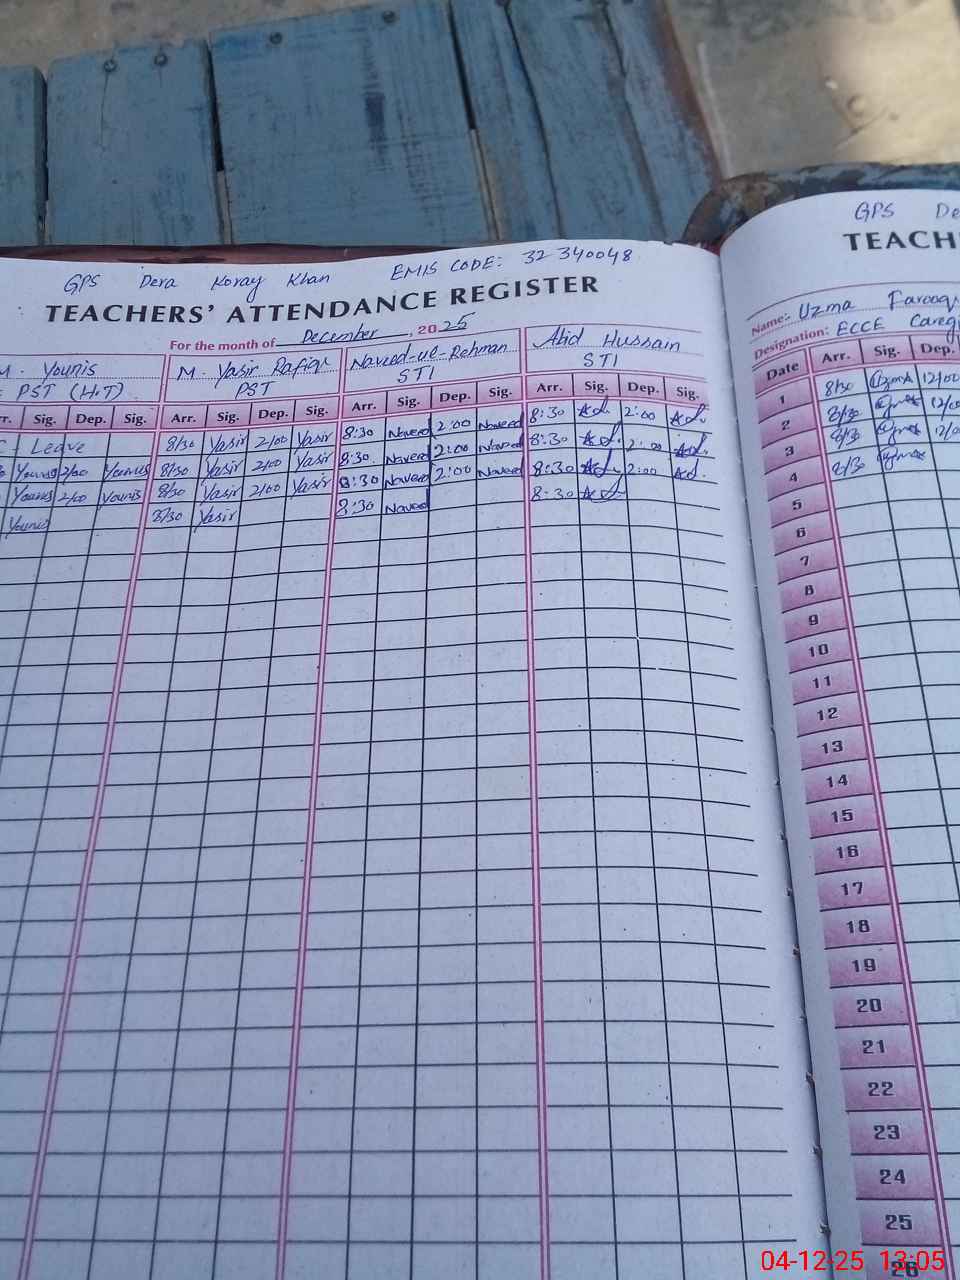 GPS Dera Koray Khan EMIS CODE: 32340048
TEACHERS' ATTENDANCE REGISTER
For the month of December, 2025
M. Younis M. Yasir Rafiq Naveed-ue-Rehman Abid Hussain
PST (H.T) PST STI STI
Sig. Dep. Sig. Arr. Sig. Dep. Sig. Arr. Sig. Dep. Sig. Arr. Sig. Dep. Sig.
Leave 8/30 Yasir 2/00 Yasir 8:30 Naveed 2:00 Naveed 8:30 2:00
Younis 2/00 Younis 8/30 Yasir 2/00 Yasir 8:30 Naveed 2:00 Naveed 8:30 2:00
Younis 2/00 Younis 8/30 Yasir 2/00 Yasir 8:30 Naveed 2:00 Naveed 8:30 2:00
Younis 8/30 Yasir 8:30 Naveed 8:30
GPS De
TEACH
Name:- Uzma Farooq
Designation: ECCE Careg
Date Arr. Sig. Dep.
1 8/30 Uzma 12/00
2 8/30 Uzma 12/0
3 8/30 Uzma 12/0
4 8/30 Uzma
5
6
7
8
9
10
11
12
13
14
15
16
17
18
19
20
21
22
23
24
25
26
04-12-25 13:05